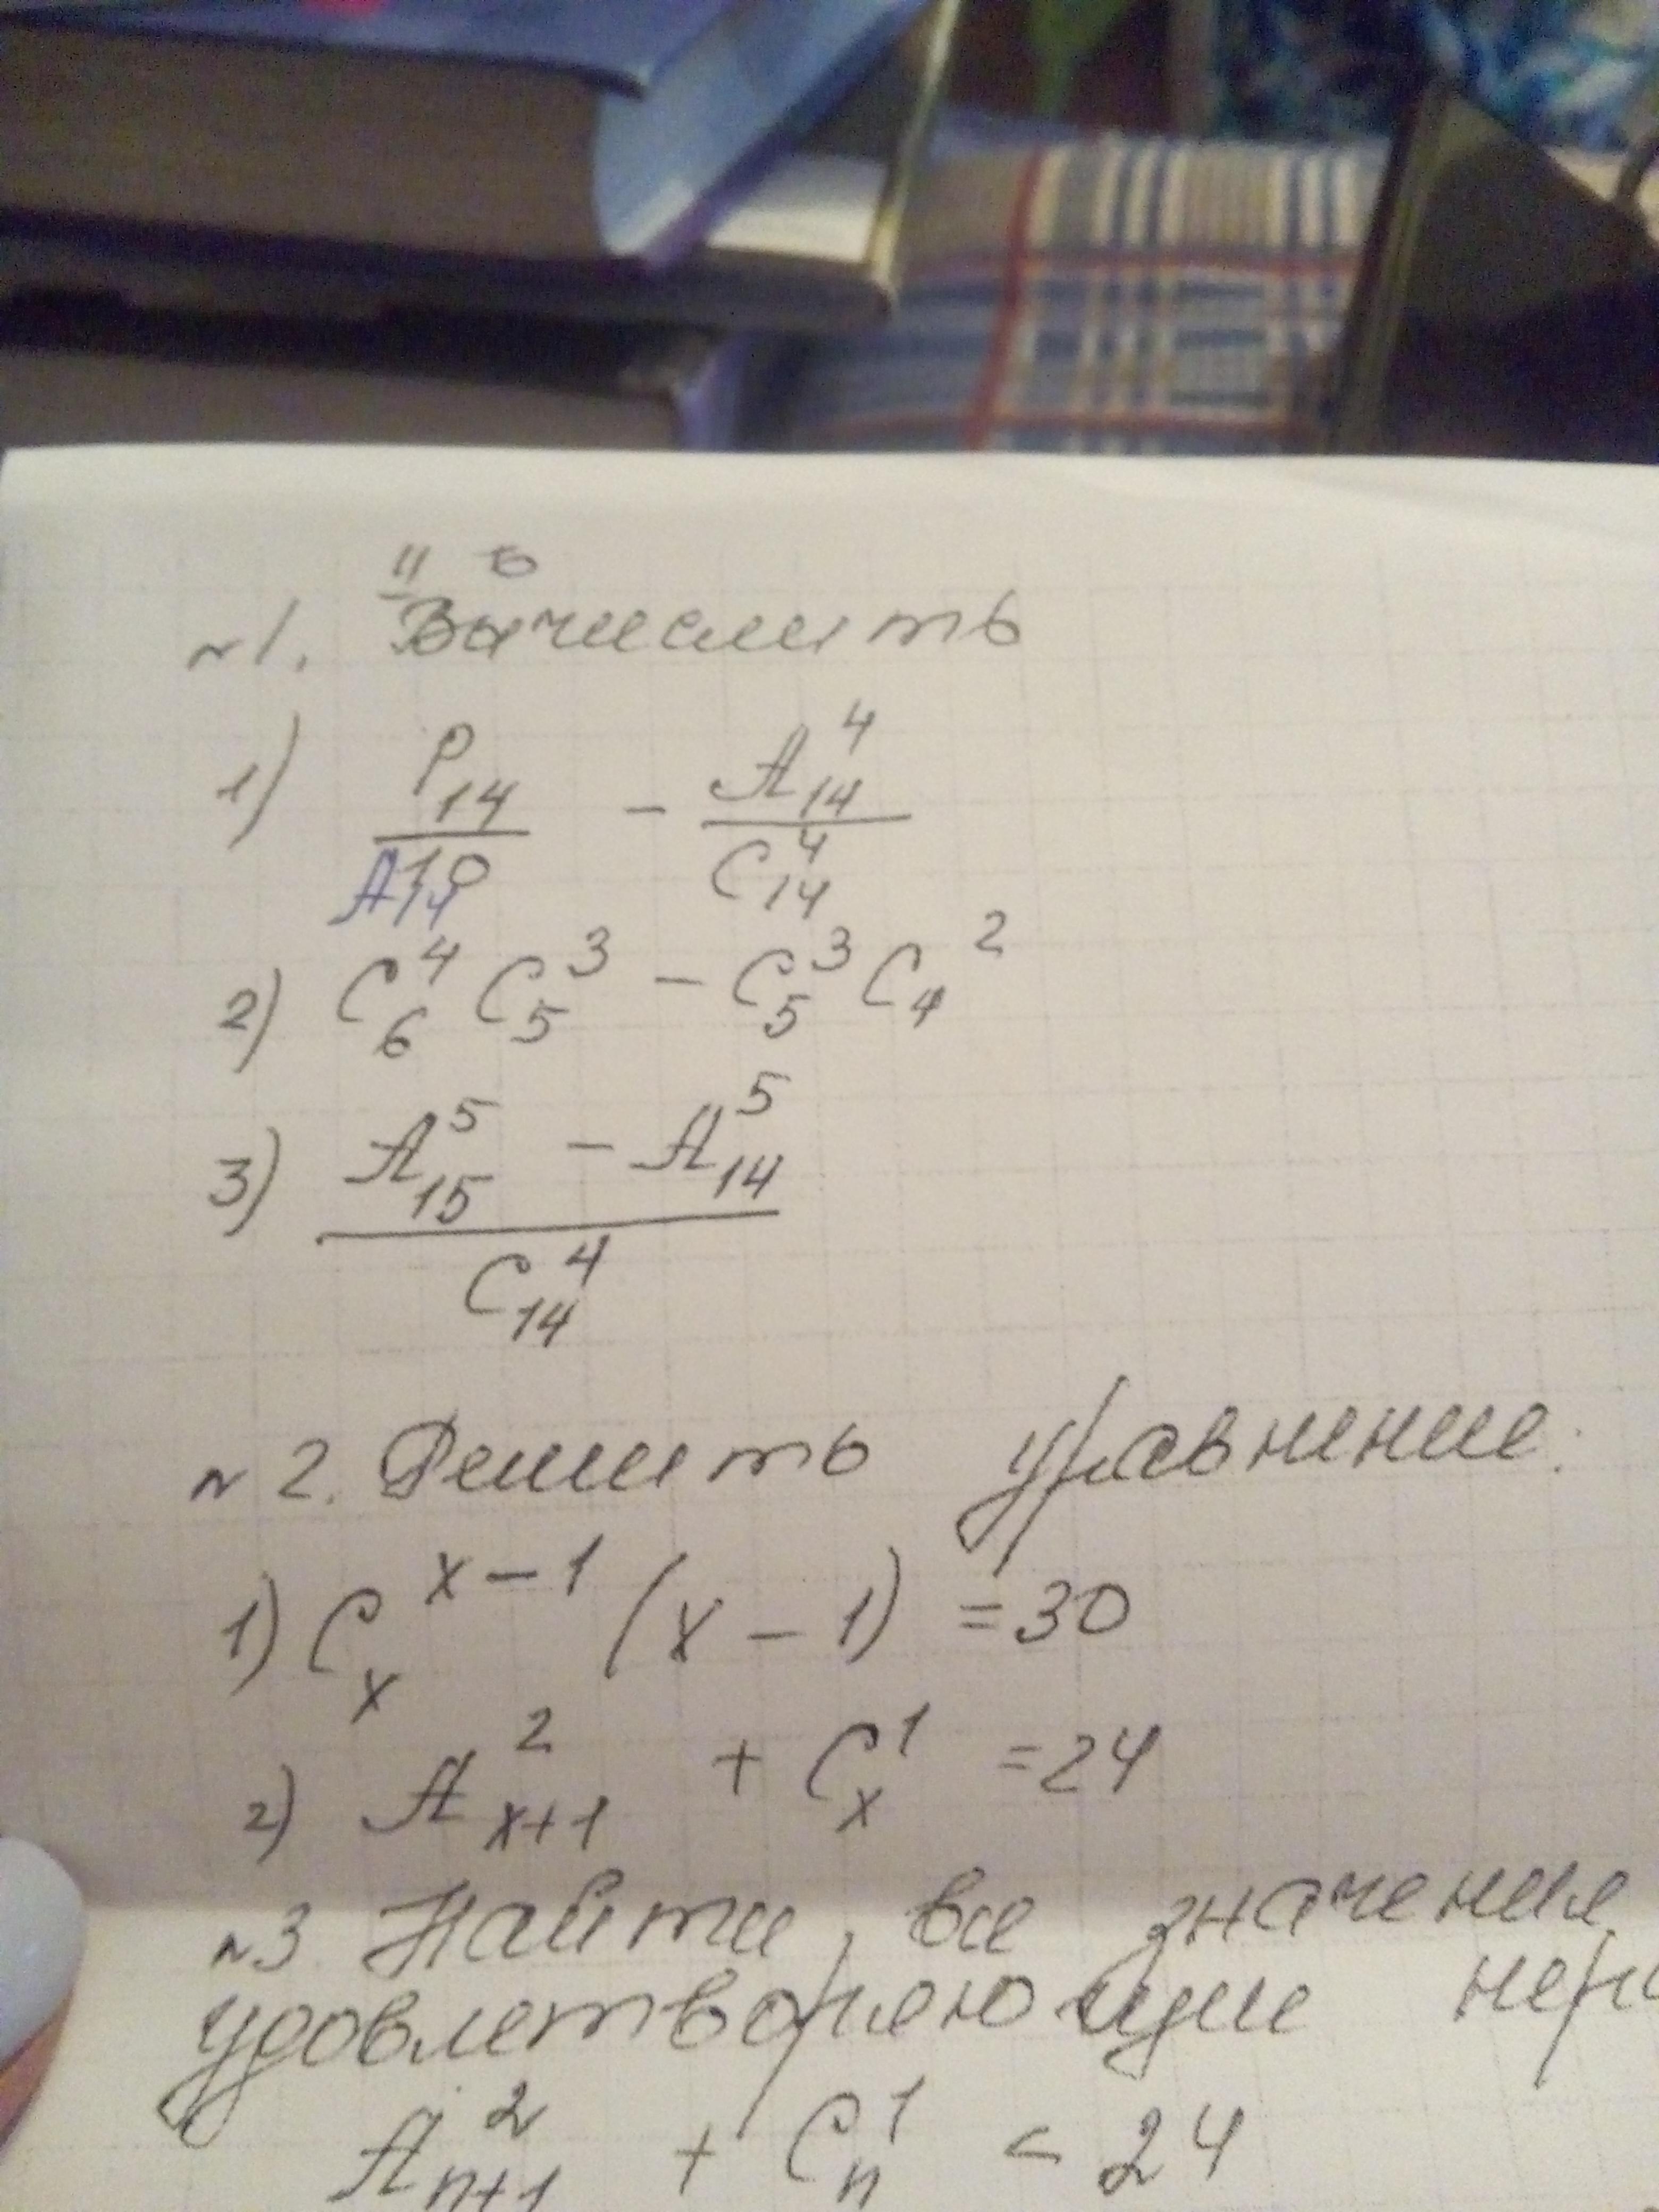 II в
№1. Вычислить
1) P₁₄ / A₁₄¹⁰ - A₁₄⁴ / C₁₄⁴
2) C₆⁴ C₅³ - C₅³ C₄²
3) (A₁₅⁵ - A₁₄⁵) / C₁₄⁴
№2. Решить уравнение:
1) Cₓˣ⁻¹ (x - 1) = 30
2) Aₓ₊₁² + Cₓ¹ = 24
№3. Найти все значения
удовлетворяющие
Aₙ₊₁² + Cₙ¹ < 24